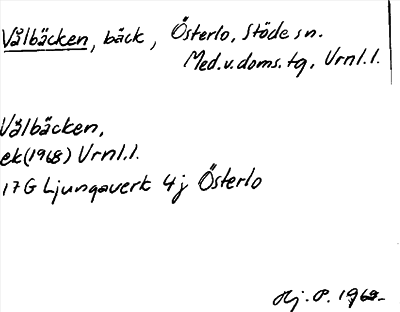 Vålbäcken, bäck, Österlo, Stöde sn.
Med.v.doms.tg, Vrnl.l.
Vålbäcken,
ek(1968) Vrnl.l.
17G Ljungaverk 4j Österlo
Hj. P. 1968